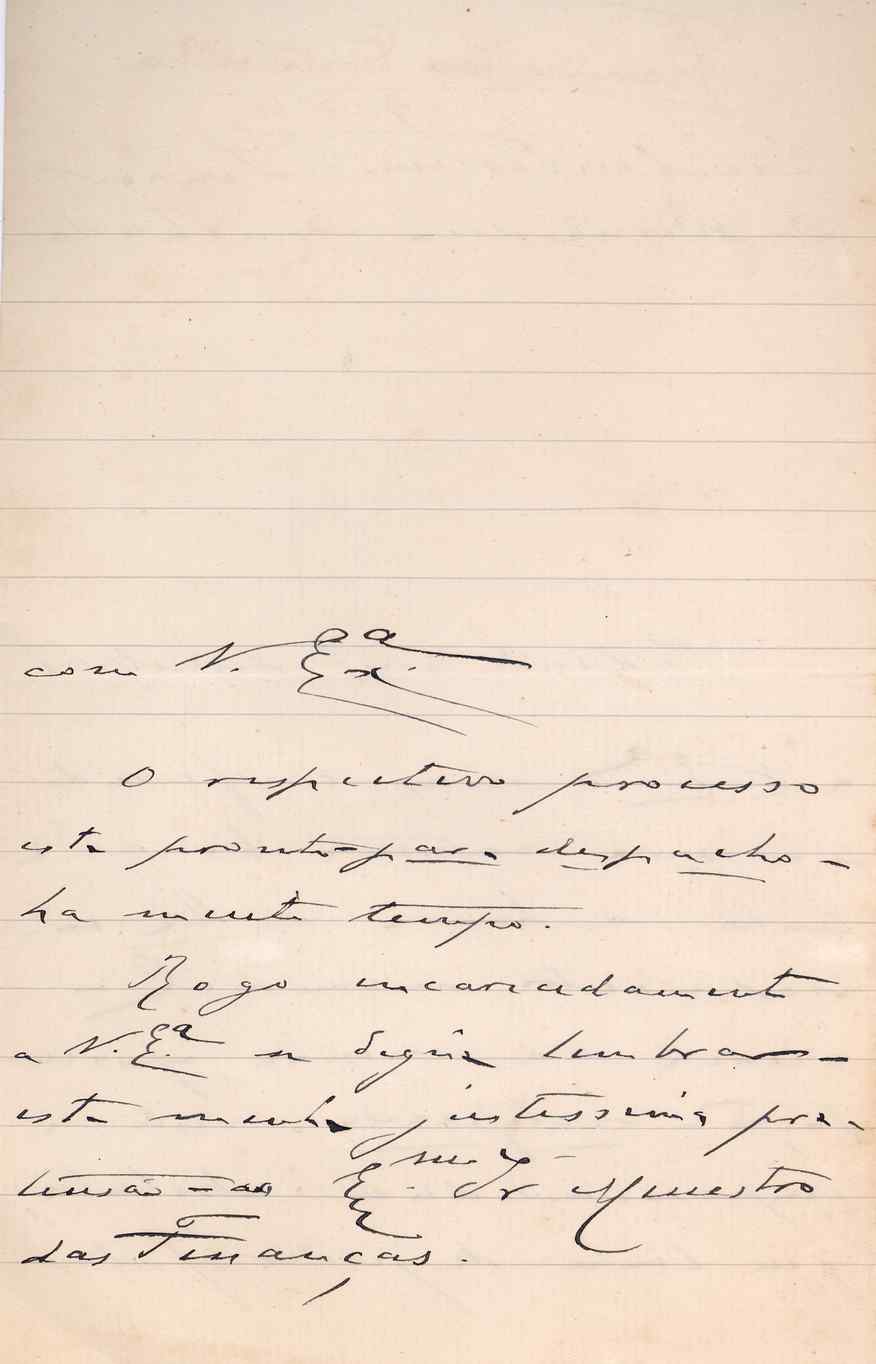 com V. Exª
O respectivo processo
está prompto para despacho -
ha muito tempo.
Rogo encarecidamente
a V. Eª se digne lembrar -
esta minha justissima pre-
tensão - ao Exmº Sr Ministro
das Finanças.